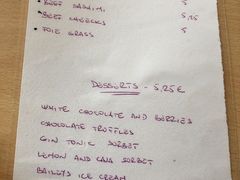 • BEEF SASHIMI 5
• BEEF CHEECKS 5,25
• FOIE GRASS 5
DESSERTS - 5,25€
WHITE CHOCOLATE AND BERRIES
CHOCOLATE TRUFFLES
GIN TONIC SORBET
LEMON AND CAVA SORBET
BAILEYS ICE CREAM